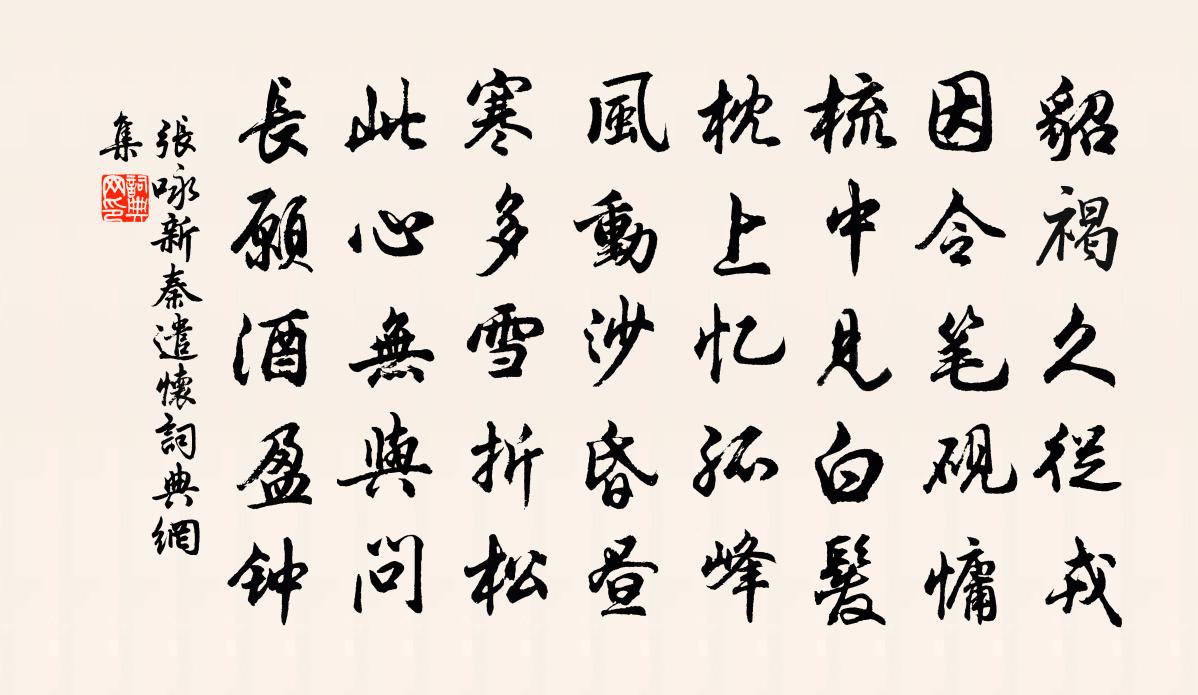 貂褐久從戎
因令笔砚慵
梳中見白髮
枕上忆孤峰
風動沙昏晝
寒多雪折松
此心無與問
長願酒盈钟
張咏新秦遣懷詞典網
集
詞典
网印